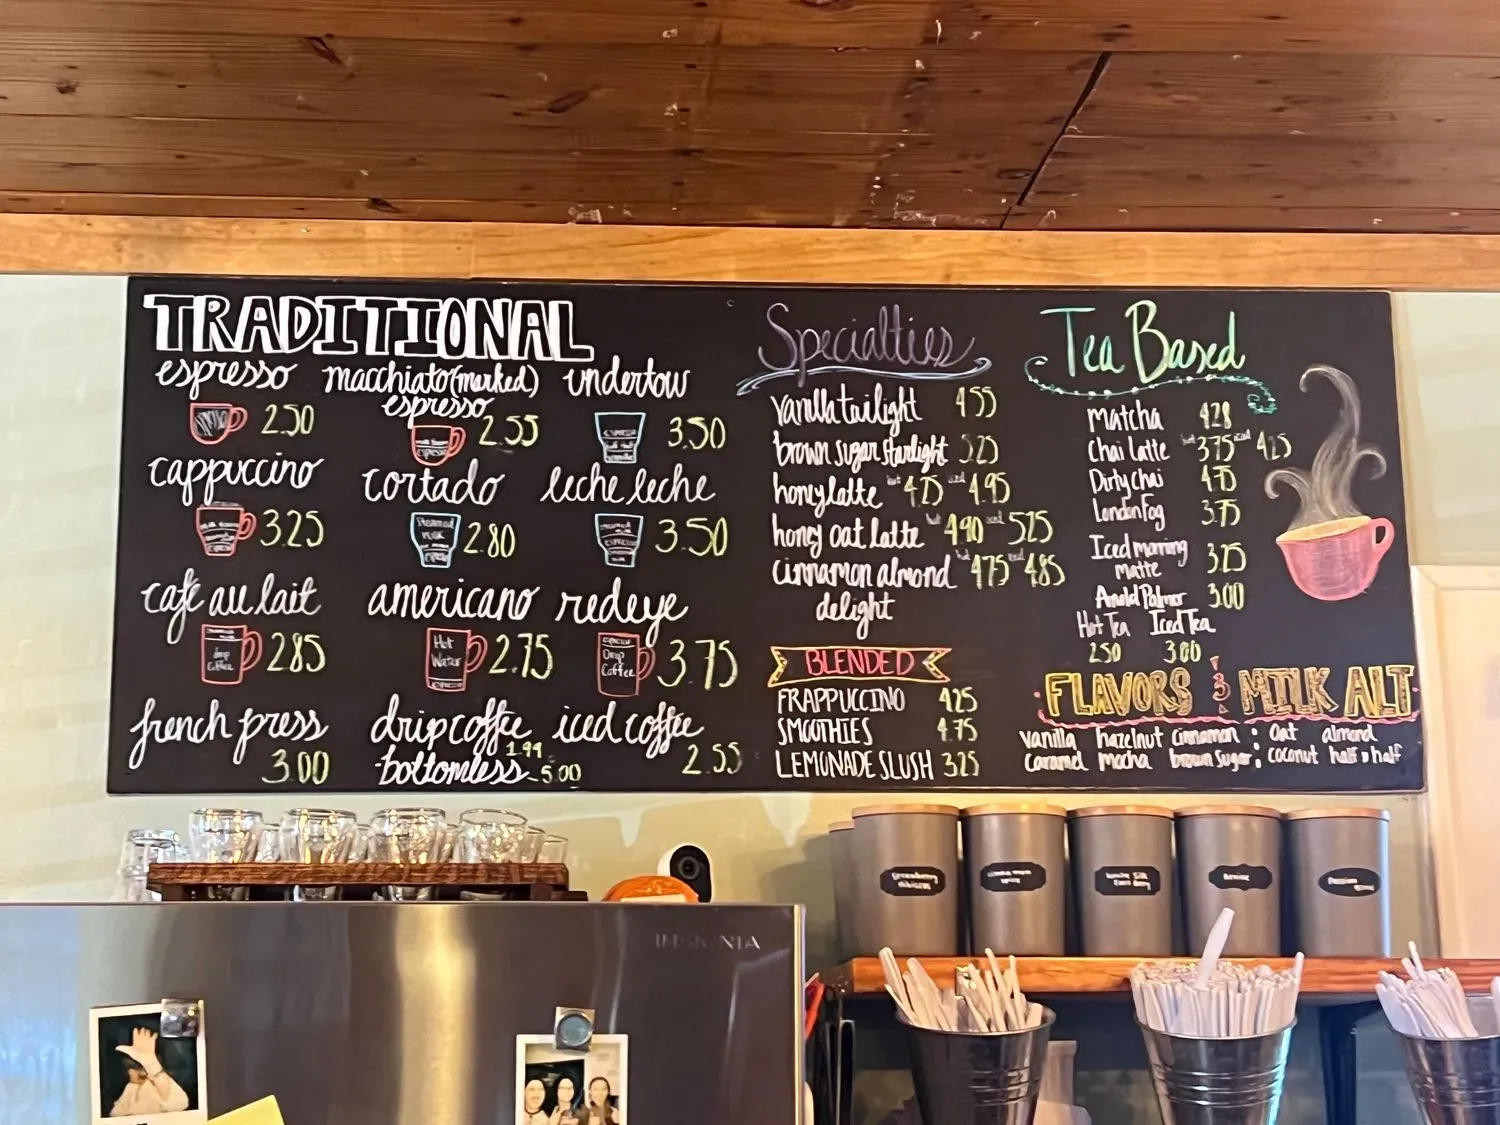 TRADITIONAL
espresso 2.50
macchiato (marked)
espresso 2.55
undertow 3.50
cappuccino 3.25
cortado 2.80
leche leche 3.50
café au lait 2.85
americano 2.75
redeye 3.75
french press 3.00
drip coffee 1.99
bottomless 5.00
iced coffee 2.55
Hot
Water
Drip
Coffee
Specialties
vanilla twilight 4.55
brown sugar starlight 5.25
honey latte hot 4.75 iced 4.95
honey oat latte hot 4.90 iced 5.25
cinnamon almond hot 4.75 iced 4.85
delight
BLENDED
FRAPPUCCINO 4.25
SMOOTHIES 4.75
LEMONADE SLUSH 3.25
Tea Based
Matcha 4.28
Chai Latte hot 3.75 iced 4.25
Dirty chai 4.75
London Fog 3.75
Iced morning
matte 3.25
Arnold Palmer 3.00
Hot Tea Iced Tea
2.50 3.00
FLAVORS & MILK ALT
vanilla hazelnut cinnamon : oat almond
caramel mocha brown sugar : coconut half & half
INSIGNIA